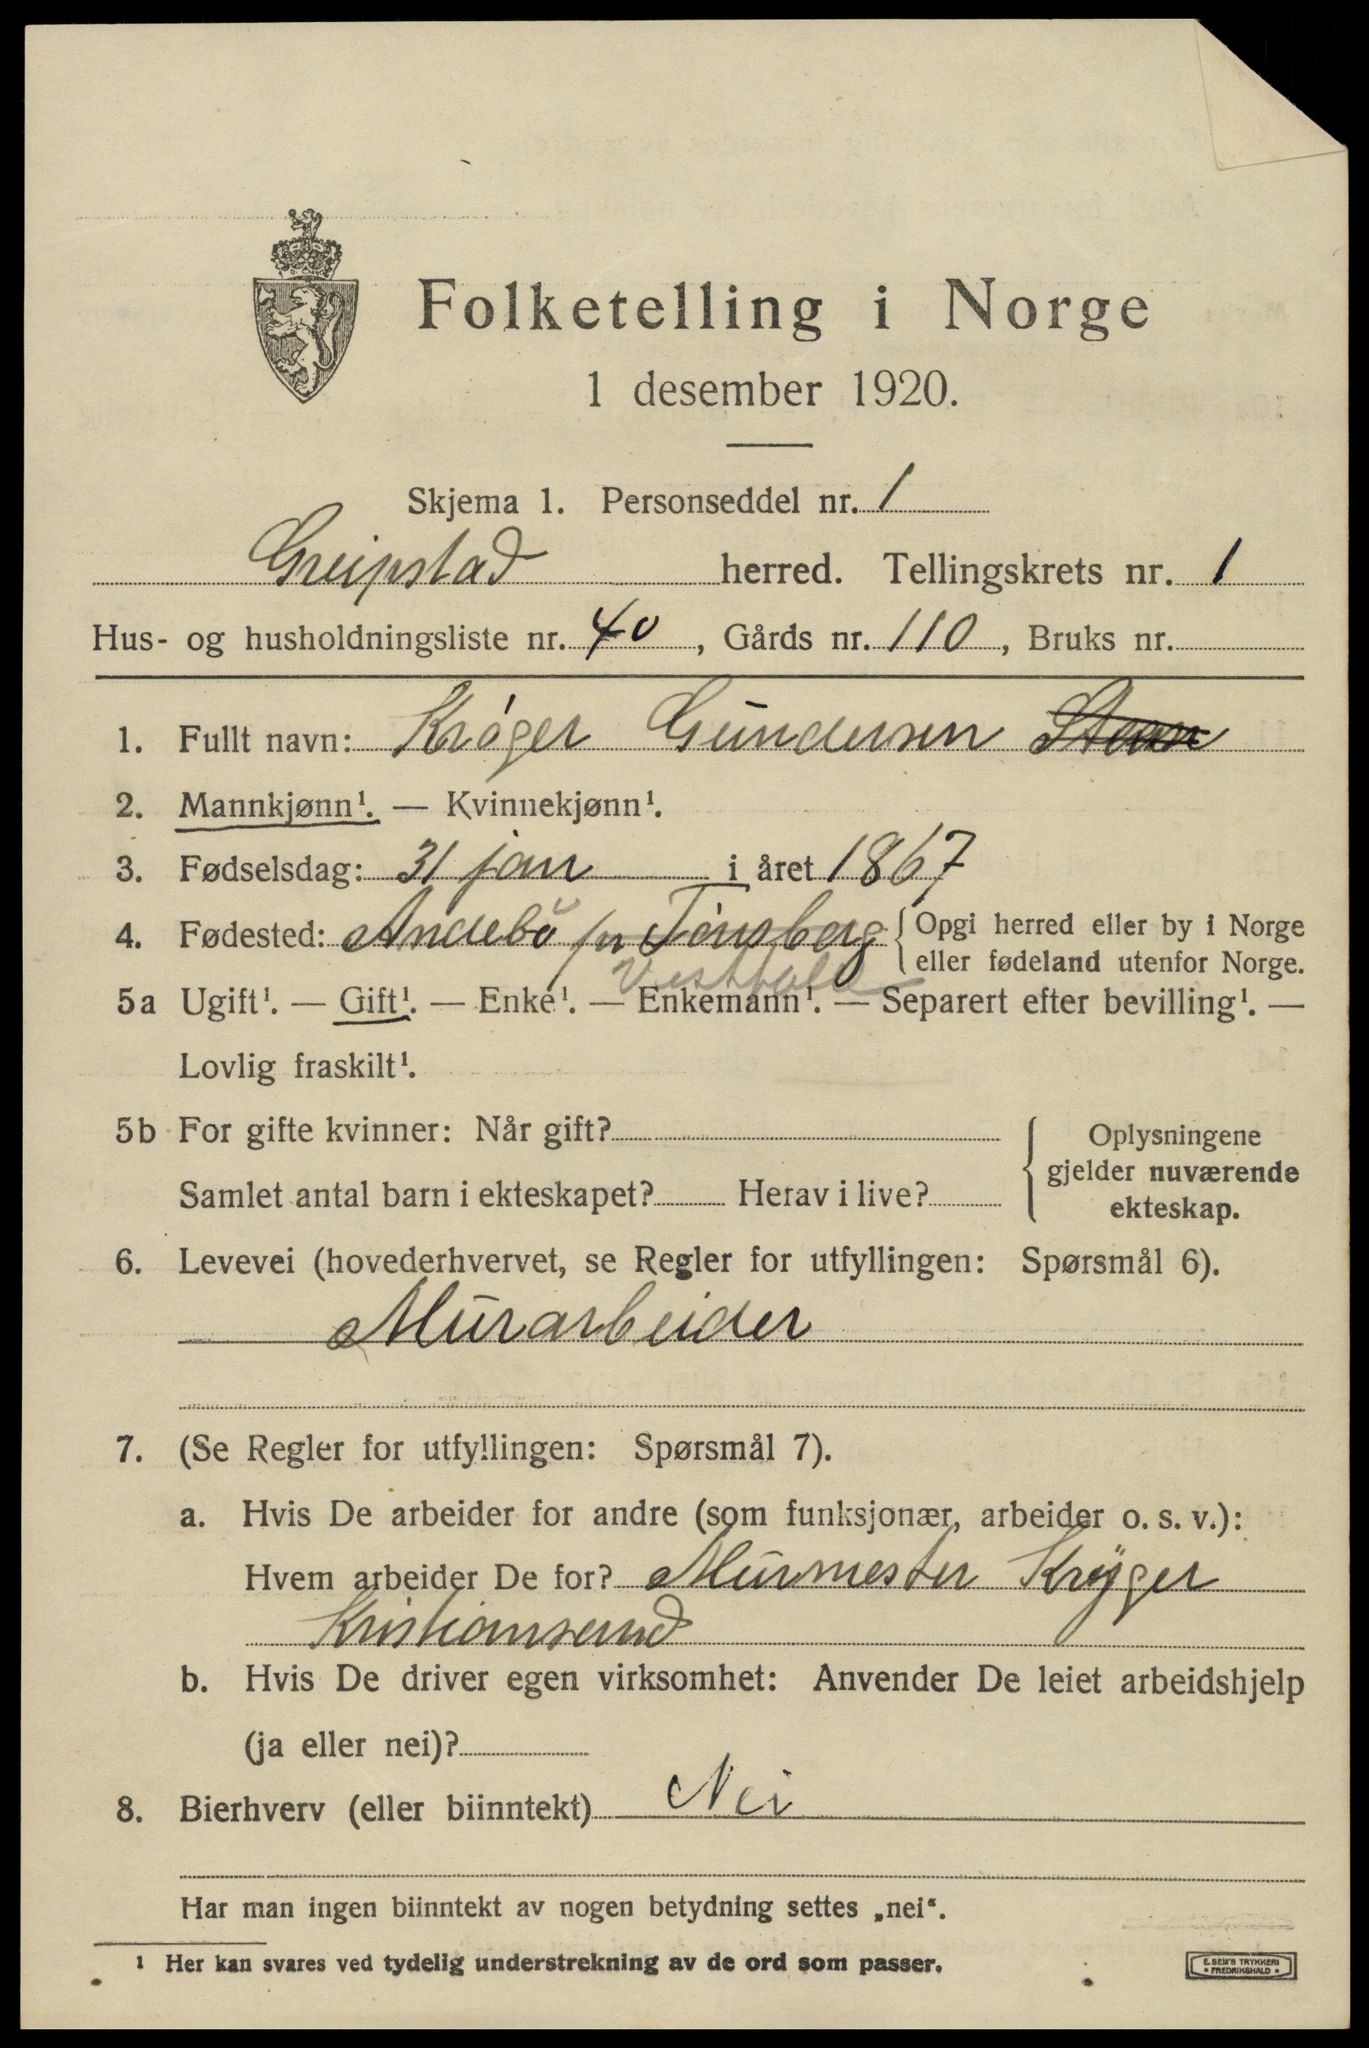 Folketelling i Norge
1 desember 1920.
Skjema 1. Personseddel nr. 1
Greipstad herred. Tellingskrets nr. 1
Hus- og husholdningsliste nr. 40, Gårds nr. 110, Bruks nr.
1. Fullt navn: Krøger Gundersen
2. Mannkjønn¹. — Kvinnekjønn¹.
3. Fødselsdag: 31 jan i året 1867
4. Fødested: Andebu pr Tønsberg { Opgi herred eller by i Norge
eller fødeland utenfor Norge.
Vestfold
5a Ugift¹. — Gift¹. — Enke¹. — Enkemann¹. — Separert efter bevilling¹. —
Lovlig fraskilt¹.
5b For gifte kvinner: Når gift? { Oplysningene
gjelder nuværende
Samlet antal barn i ekteskapet? Herav i live? ekteskap.
6. Levevei (hovederhvervet, se Regler for utfyllingen: Spørsmål 6).
Murarbeider
7. (Se Regler for utfyllingen: Spørsmål 7).
a. Hvis De arbeider for andre (som funksjonær, arbeider o. s. v.):
Hvem arbeider De for? Murmester Krÿger
Kristiansand
b. Hvis De driver egen virksomhet: Anvender De leiet arbeidshjelp
(ja eller nei)?
8. Bierhverv (eller biinntekt) Nei
Har man ingen biinntekt av nogen betydning settes „nei“.
¹ Her kan svares ved tydelig understrekning av de ord som passer.
E. SEM'S TRYKKERI
• FREDRIKSHALD •